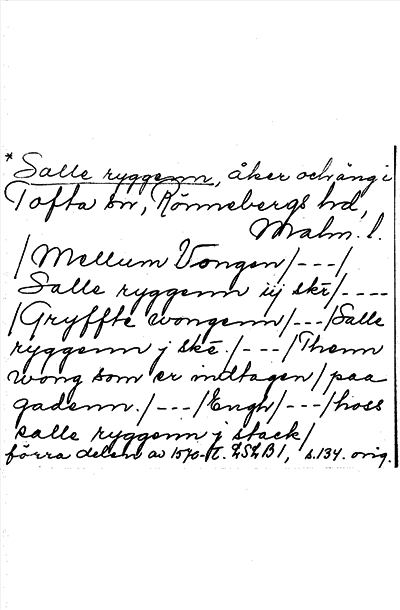 *Salle ryggenn, åker och äng i
Tofta sn, Rönnebergs hd,
Malm. l.
/Mellum Vongen/---/
Salle ryggenn iij skē/----
/Gryffte wongenn/---/Salle
ryggenn j skē./---/Thenn
wong som er indtagen/paa
gadenn./---/Engh/---/hoss
salle ryggenn j stack/
förra delen av 1570-t. LSLB 1, s. 134. orig.